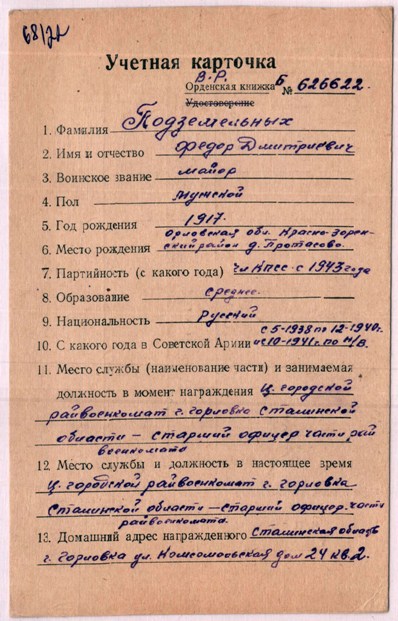 68/22
Учетная карточка
В.Р.
Орденская книжка Б № 626622.
Удостоверение
1. Фамилия Подземельных
2. Имя и отчество Федор Дмитриевич
3. Воинское звание майор
4. Пол мужской
5. Год рождения 1917.
Орловская обл. Красно-Зорен-
6. Место рождения ский район д. Протасово.
7. Партийность (с какого года) чл КПСС с 1943 года
8. Образование среднее.
9. Национальность русский
с 5-1938 по 12-1940г.
10. С какого года в Советской Армии и с 10-1941г. по Н/В.
11. Место службы (наименование части) и занимаемая
должность в момент награждения Ц. городской
райвоенкомат г. Горловка Сталинской
области – старший офицер части рай
военкомата
12. Место службы и должность в настоящее время
Ц. городской райвоенкомат г. Горловка
Сталинской области – старший офицер части
райвоенкомата.
13. Домашний адрес награжденного Сталинская область
г. Горловка ул. Комсомольская дом 24 кв. 2.